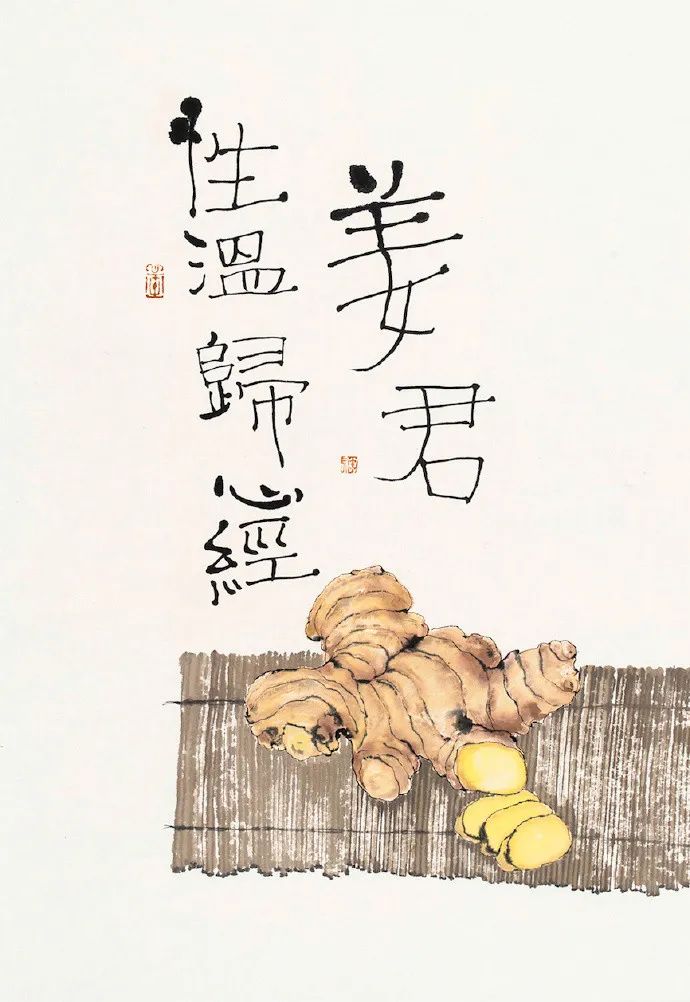 姜君
性溫歸心經